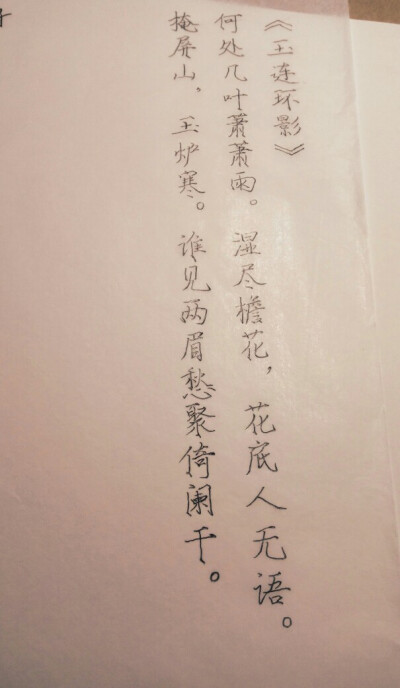 《玉连环影》
何处几叶萧萧雨。湿尽檐花，花底人无语。
掩屏山，玉炉寒。谁见两眉愁聚倚阑干。